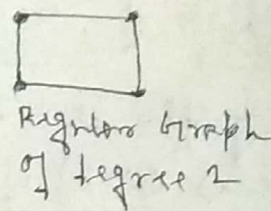 Regular Graph
of degree 2